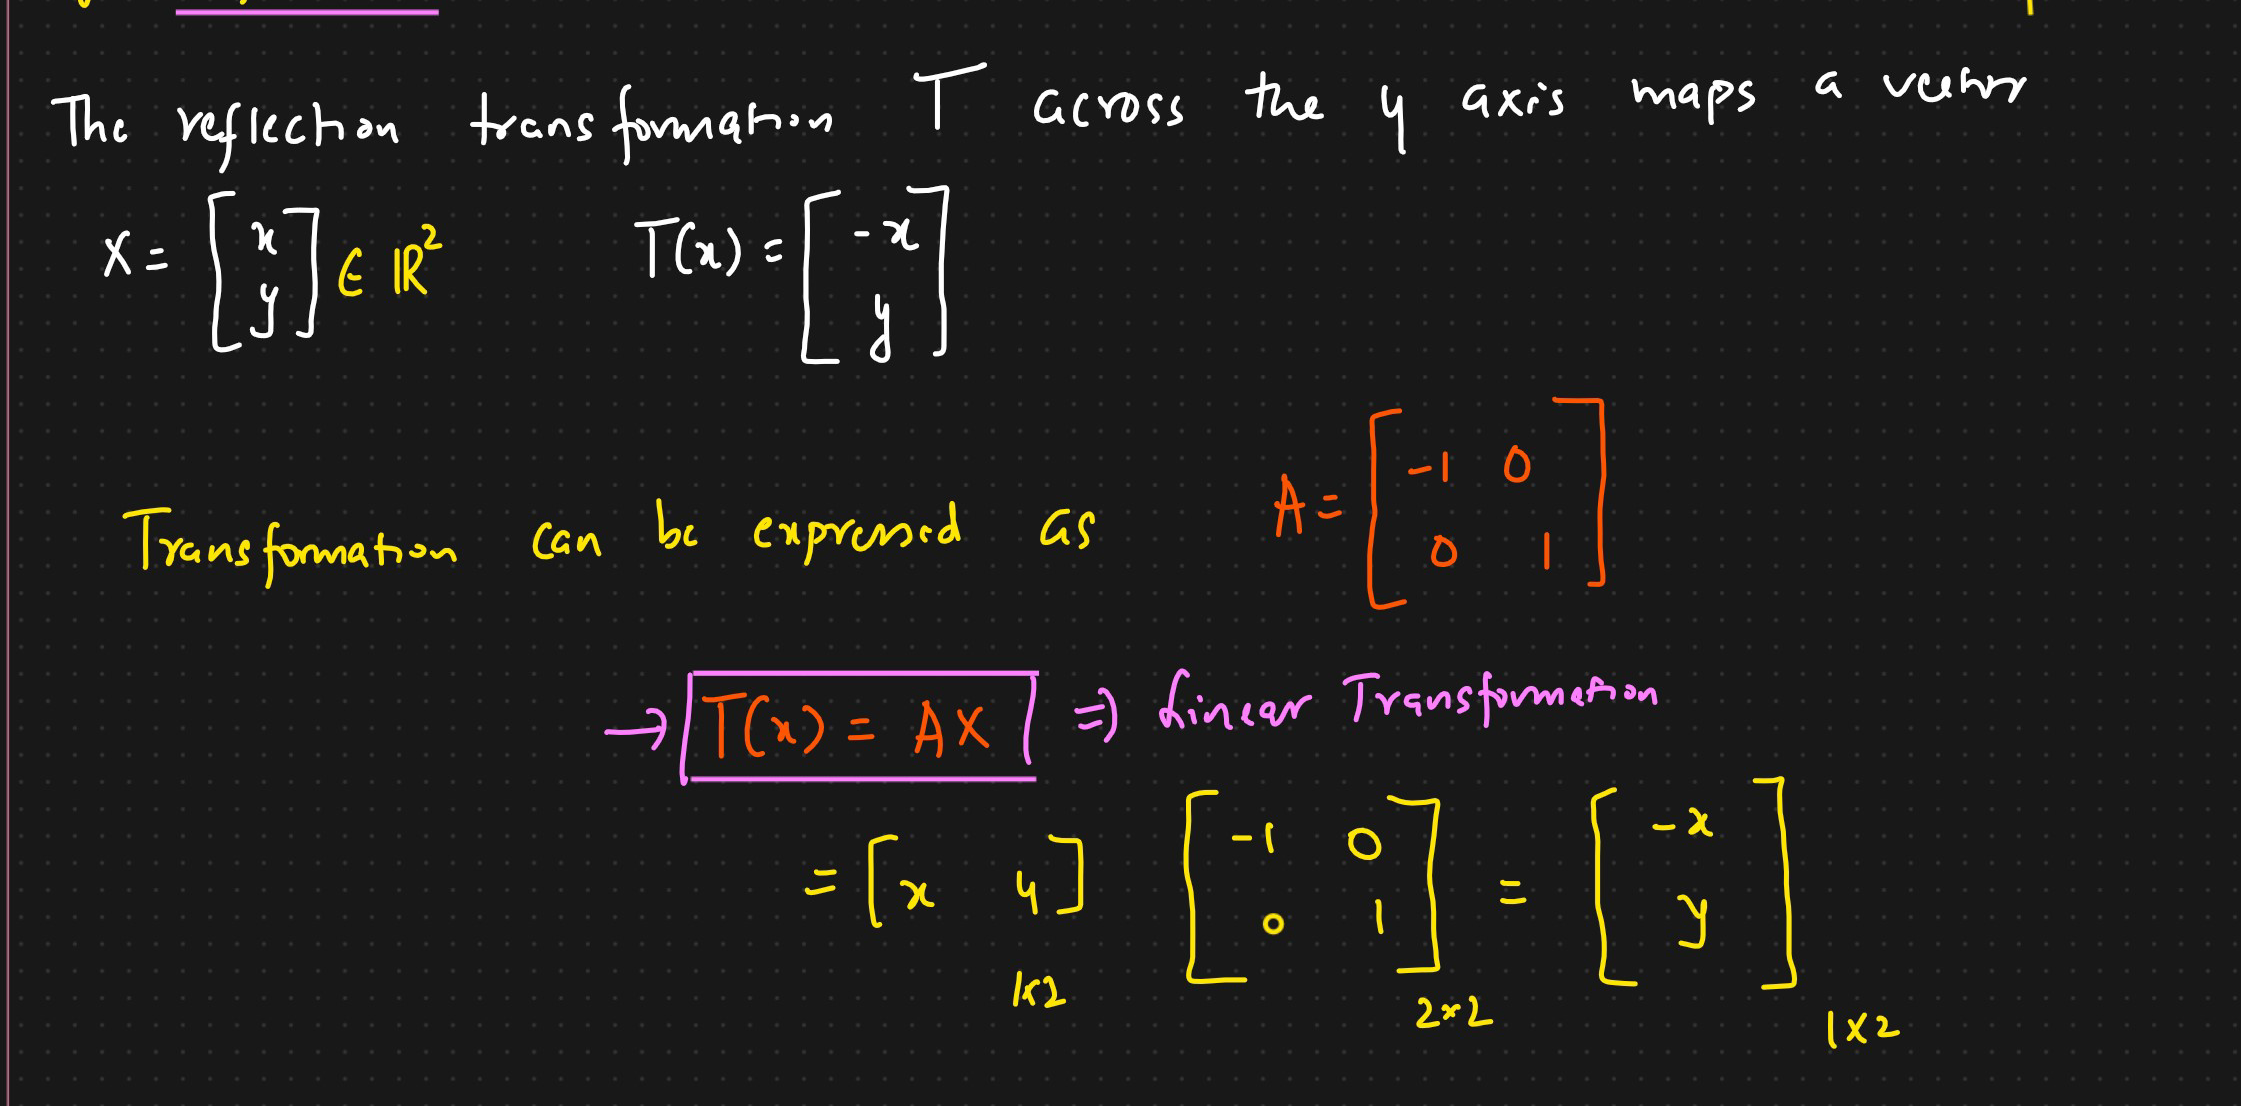 The reflection transformation T across the y axis maps a vector
X = [x y] ∈ ℝ² T(x) = [-x y]
Transformation can be expressed as A = [-1 0 0 1]
→ T(x) = AX ⇒ Linear Transformation
= [x y] [-1 0 0 1] = [-x y]
1x2 2x2 1x2